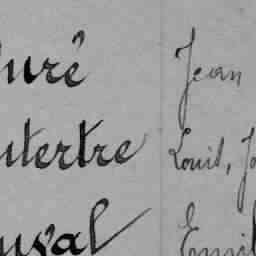 uré Jean
utertre Louis, Jo
uval Emil